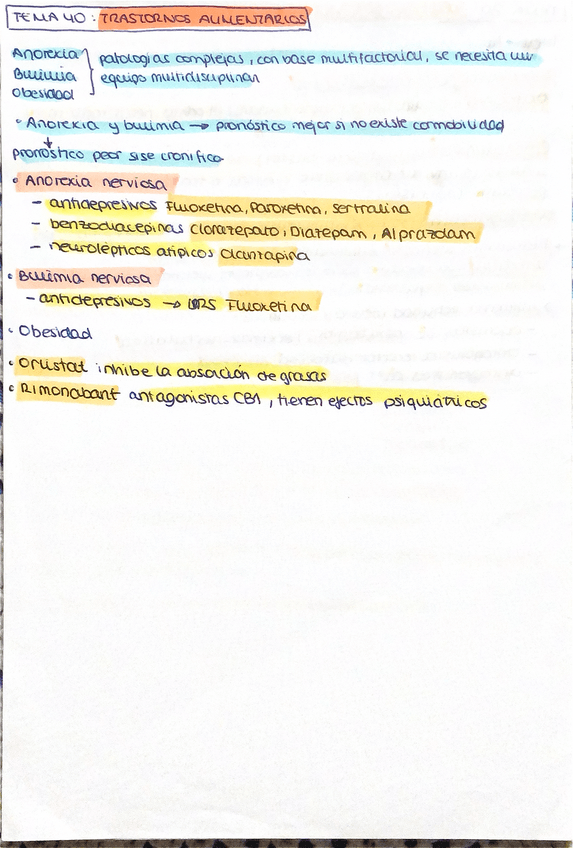 TEMA 40: TRASTORNOS ALIMENTARIOS
Anorexia } patologías complejas, con base multifactorial, se necesita un
Bulimia equipo multidisciplinar
Obesidad
• Anorexia y bulimia → pronóstico mejor si no existe comorbilidad
↓
pronóstico peor si se cronifica
• Anorexia nerviosa
- antidepresivos Fluoxetina, Paroxetina, sertralina
- benzodiacepinas Clorazepato, Diazepam, Alprazolam
- neurolépticos atípicos Olanzapina
• Bulimia nerviosa
- antidepresivos → Fluoxetina
• Obesidad
• Orlistat inhibe la absorción de grasas
• Rimonabant antagonistas CB1, tienen efectos psiquiátricos